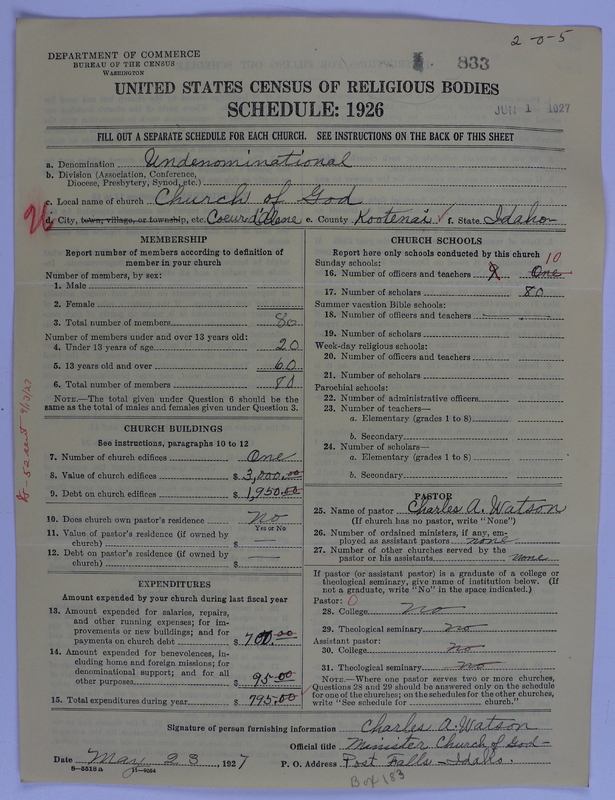 2-0-5
DEPARTMENT OF COMMERCE
BUREAU OF THE CENSUS
WASHINGTON
833
UNITED STATES CENSUS OF RELIGIOUS BODIES
SCHEDULE: 1926
JUN 1 1927
FILL OUT A SEPARATE SCHEDULE FOR EACH CHURCH. SEE INSTRUCTIONS ON THE BACK OF THIS SHEET
a. Denomination Undenominational
b. Division (Association, Conference,
Diocese, Presbytery, Synod, etc.)
c. Local name of church Church of God
d. City, town, village, or township, etc. Coeur d'Alene e. County Kootenai f. State Idaho
MEMBERSHIP
Report number of members according to definition of
member in your church
Number of members, by sex:
1. Male
2. Female
3. Total number of members 80
Number of members under and over 13 years old:
4. Under 13 years of age 20
5. 13 years old and over 60
6. Total number of members 80
NOTE.—The total given under Question 6 should be
same as the total of males and females given under Question 3.
CHURCH BUILDINGS
See instructions, paragraphs 10 to 12
7. Number of church edifices One
8. Value of church edifices $ 3,000.00
9. Debt on church edifices $ 1,950.00
10. Does church own pastor's residence No
Yes or No
11. Value of pastor's residence (if owned by
church) $ —
12. Debt on pastor's residence (if owned by
church) $ —
EXPENDITURES
Amount expended by your church during last fiscal year
13. Amount expended for salaries, repairs,
and other running expenses; for im-
provements or new buildings; and for
payments on church debt $ 700.00
14. Amount expended for benevolences, in-
cluding home and foreign missions; for
denominational support; and for all
other purposes $ 95.00
15. Total expenditures during year $ 795.00
CHURCH SCHOOLS
Report here only schools conducted by this church
Sunday schools: 10
16. Number of officers and teachers 9 One
17. Number of scholars 80
Summer vacation Bible schools:
18. Number of officers and teachers
19. Number of scholars
Week-day religious schools:
20. Number of officers and teachers
21. Number of scholars
Parochial schools:
22. Number of administrative officers
23. Number of teachers—
a. Elementary (grades 1 to 8)
b. Secondary
24. Number of scholars—
a. Elementary (grades 1 to 8)
b. Secondary
PASTOR
25. Name of pastor Charles A. Watson
(If church has no pastor, write "None")
26. Number of ordained ministers, if any, em-
ployed as assistant pastors none
27. Number of other churches served by the
pastor or his assistants none
If pastor (or assistant pastor) is a graduate of a college or
theological seminary, give name of institution below. (If
not a graduate, write "No" in the space indicated.)
Pastor: 0
28. College No
29. Theological seminary No
Assistant pastor:
30. College No
31. Theological seminary No
NOTE.—Where one pastor serves two or more churches,
Questions 28 and 29 should be answered only on the schedule
for one of the churches; on the schedules for the other churches,
write "See schedule for church."
Signature of person furnishing information Charles A. Watson
Official title Minister Church of God-
Date May 23, 1927 P. O. Address Post Falls - Idaho.
8-5518a 11-9034
Box 183